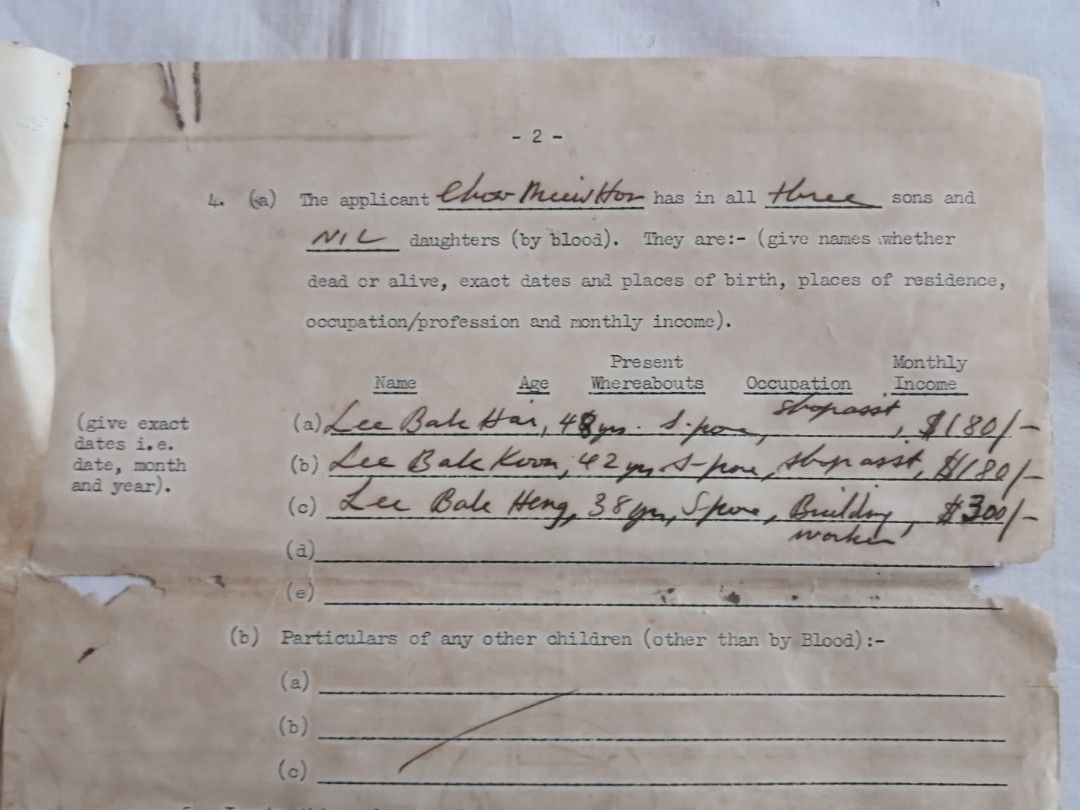 - 2 -
4. (a) The applicant Chow has in all three sons and
NIL daughters (by blood). They are:- (give names whether
dead or alive, exact dates and places of birth, places of residence,
occupation/profession and monthly income).
Name Age Present Whereabouts Occupation Monthly Income
(give exact dates i.e. date, month and year).
(a) Lee Bak Hai, 48 yrs. S'pore, shop asst, $180/-
(b) Lee Bak Koon, 42 yrs S-pore, shop asst, $180/-
(c) Lee Bak Heng, 38 yrs, S'pore, Building worker, $300/-
(d)
(e)
(b) Particulars of any other children (other than by Blood):-
(a)
(b)
(c)